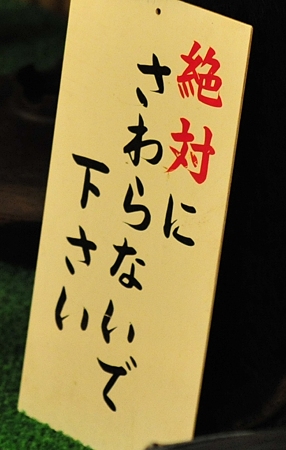 絶対に
さわらないで
下さい